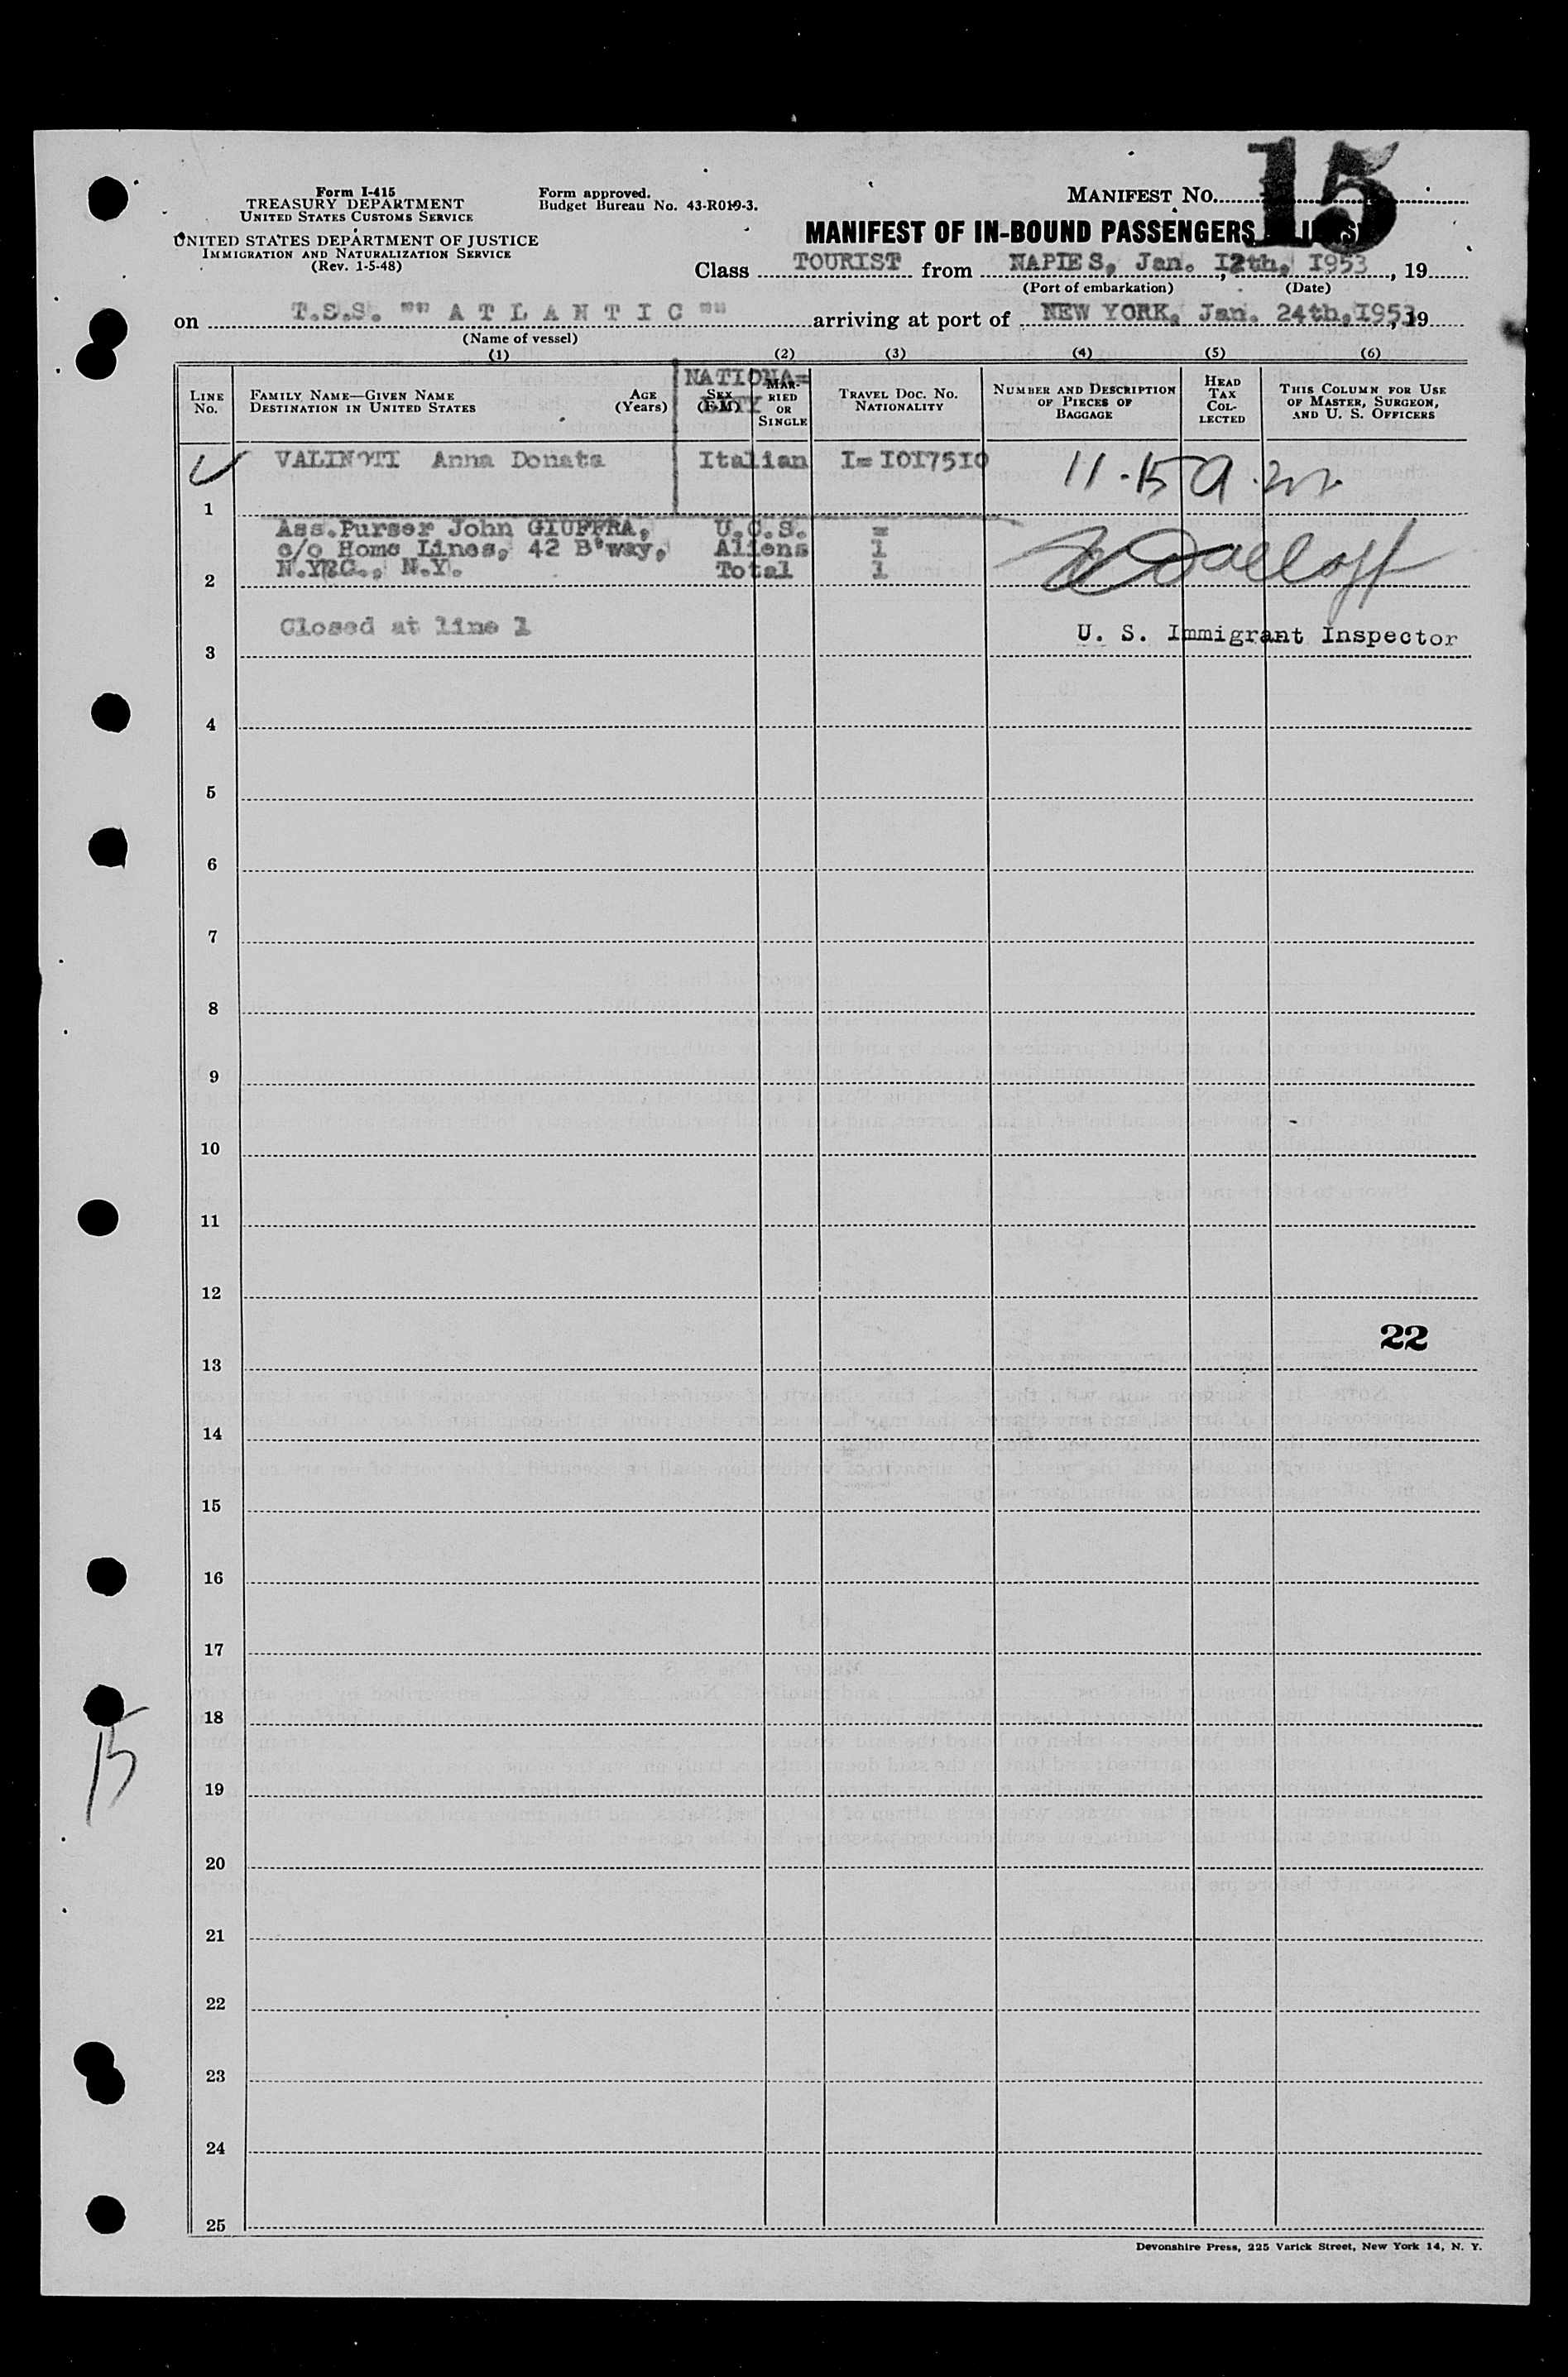 Form I-415
TREASURY DEPARTMENT
UNITED STATES CUSTOMS SERVICE
UNITED STATES DEPARTMENT OF JUSTICE
IMMIGRATION AND NATURALIZATION SERVICE
(Rev. 1-5-48)
Form approved.
Budget Bureau No. 43-R019-3.
MANIFEST NO. 15
MANIFEST OF IN-BOUND PASSENGERS
Class TOURIST from NAPLES, Jan. 12th, 1953, 19
(Port of embarkation) (Date)
on T.S.S. "" A T L A N T I C "" arriving at port of NEW YORK, Jan. 24th, 1953 19
(Name of vessel)
(1) (2) (3) (4) (5) (6)
LINE No.
FAMILY NAME—GIVEN NAME
DESTINATION IN UNITED STATES
AGE (Years)
NATIONA=
SEX (F-M)
MARRIED OR SINGLE
TRAVEL DOC. NO.
NATIONALITY
NUMBER AND DESCRIPTION OF PIECES OF BAGGAGE
HEAD TAX COLLECTED
THIS COLUMN FOR USE OF MASTER, SURGEON, AND U. S. OFFICERS
VALINOTI Anna Donata Italian I=I0I75I0
1
Ass.Purser John GIUFFRA, U.C.S. =
c/o Home Lines, 42 B'way, Aliens 1
N.Y.C., N.Y. Total 1
2
Closed at line 1
U. S. Immigrant Inspector
3
4
5
6
7
8
9
10
11
12
22
13
14
15
16
17
18
15
19
20
21
22
23
24
25
Devonshire Press, 225 Varick Street, New York 14, N. Y.